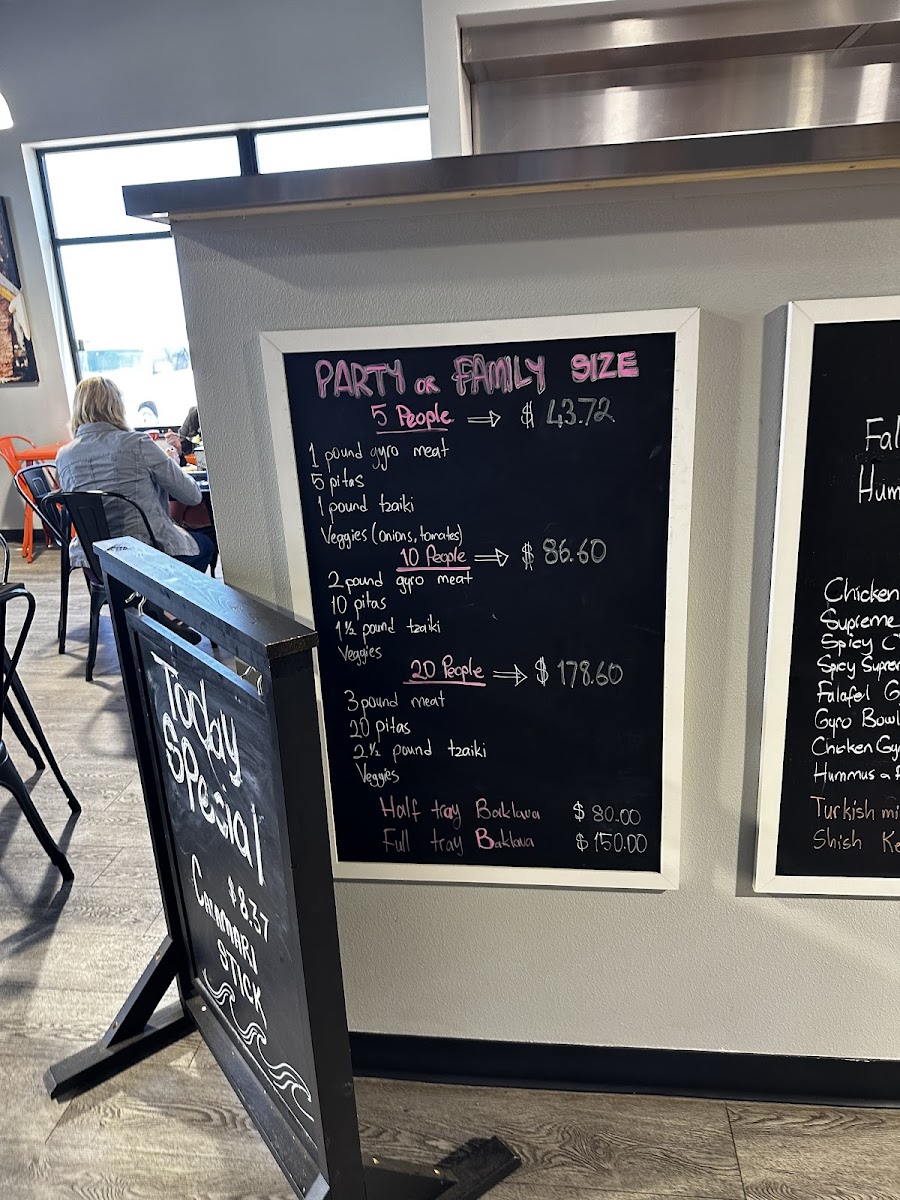 PARTY OR FAMILY SIZE
5 People → $ 43.72
1 pound gyro meat
5 pitas
1 pound tzaiki
Veggies (onions, tomates)
10 People → $ 86.60
2 pound gyro meat
10 pitas
1 ½ pound tzaiki
Veggies
20 People → $ 178.60
3 pound meat
20 pitas
2 ½ pound tzaiki
Veggies
Half tray Baklava $ 80.00
Full tray Baklava $ 150.00
Today
SPecial
$ 8.37
CALAMARI
STICK
Fal
Hum
Chicken
Supreme
Spicy
Spicy Suprem
Falafel G
Gyro Bowl
Chicken Gy
Hummus a f
Turkish mi
Shish Ke